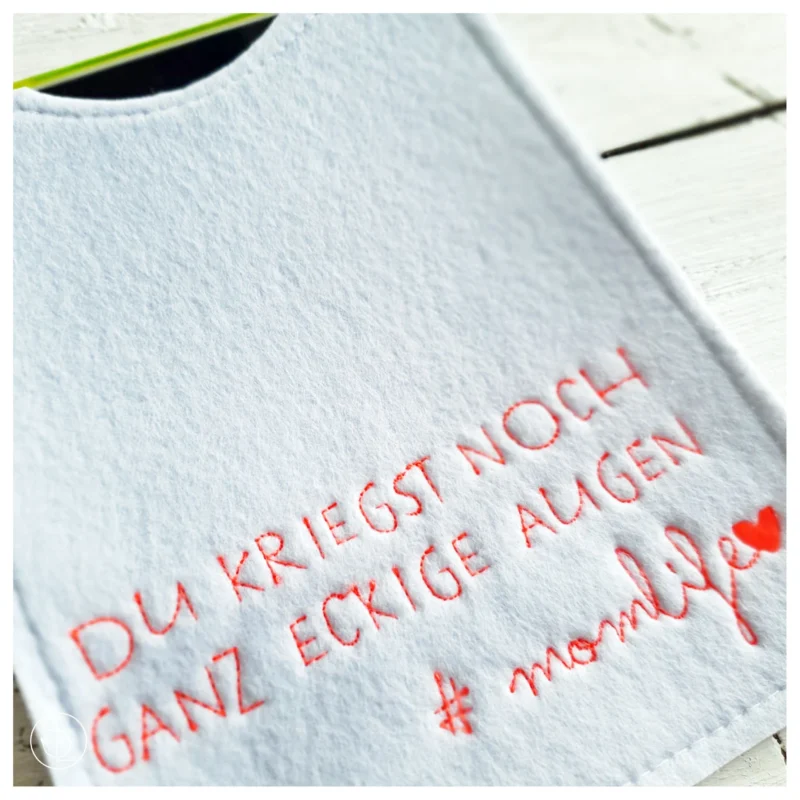 DU KRIEGST NOCH
GANZ ECKIGE AUGEN
# momlife